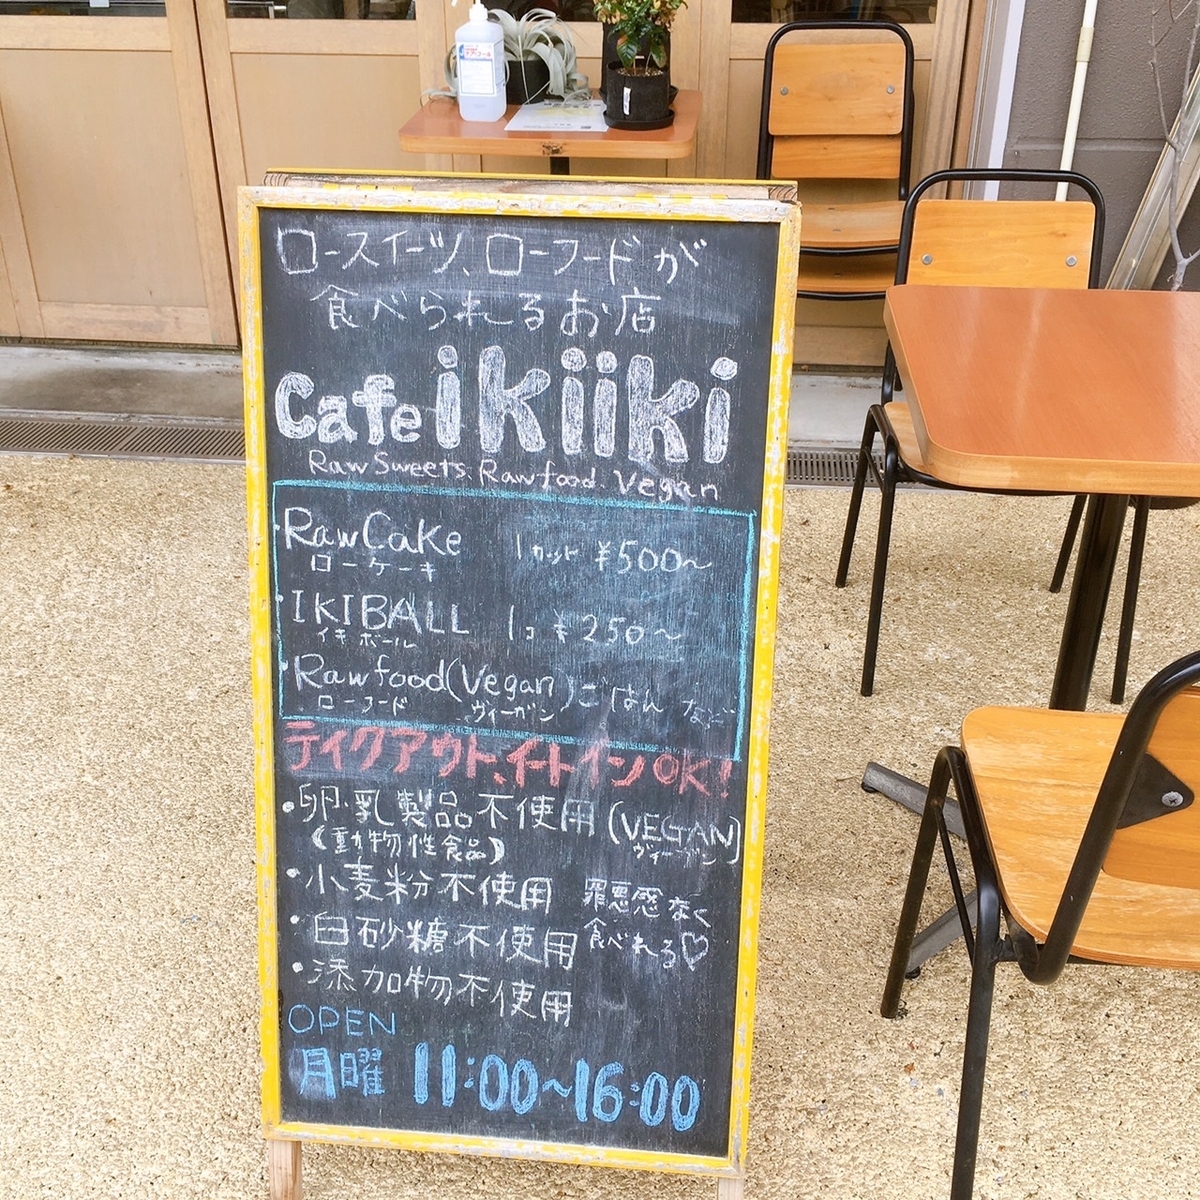 ロースイーツ、ローフードが
食べられるお店
Cafe ikiiki
Raw Sweets. Rawfood. Vegan
・Raw Cake 1カット ¥500〜
ローケーキ
・IKIBALL 1コ ¥250〜
イキボール
・Rawfood(Vegan)ごはん など
ローフード ヴィーガン
テイクアウト、イートインOK!
・卵・乳製品不使用(VEGAN)
(動物性食品) ヴィーガン
・小麦粉不使用
・白砂糖不使用
・添加物不使用
罪悪感なく
食べれる♡
OPEN
月曜 11:00〜16:00